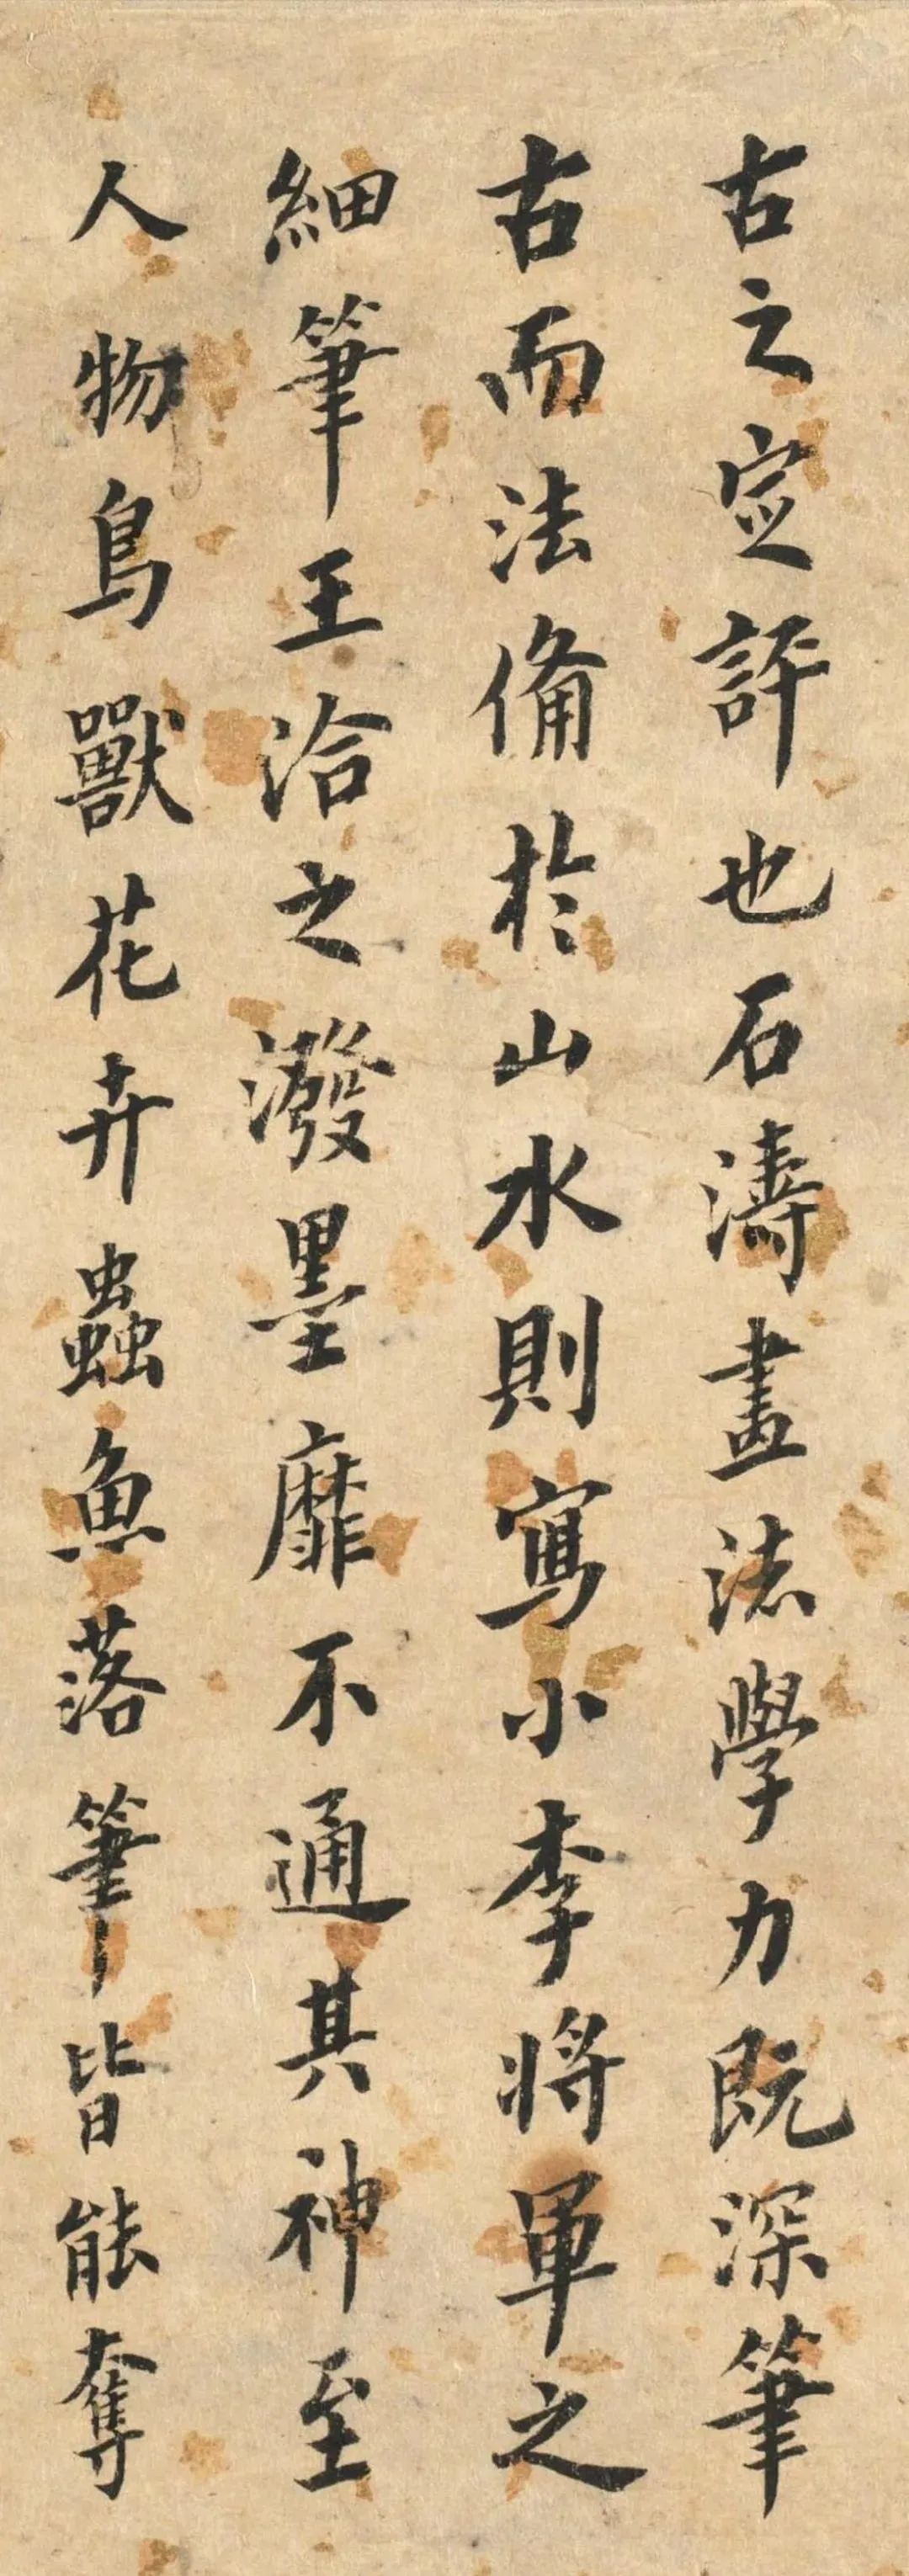 古之定評也石濤畫法學力既深筆
古而法備於山水則寫小李將軍之
細筆王洽之潑墨靡不通其神至
人物鳥獸花卉蟲魚落筆皆能奪